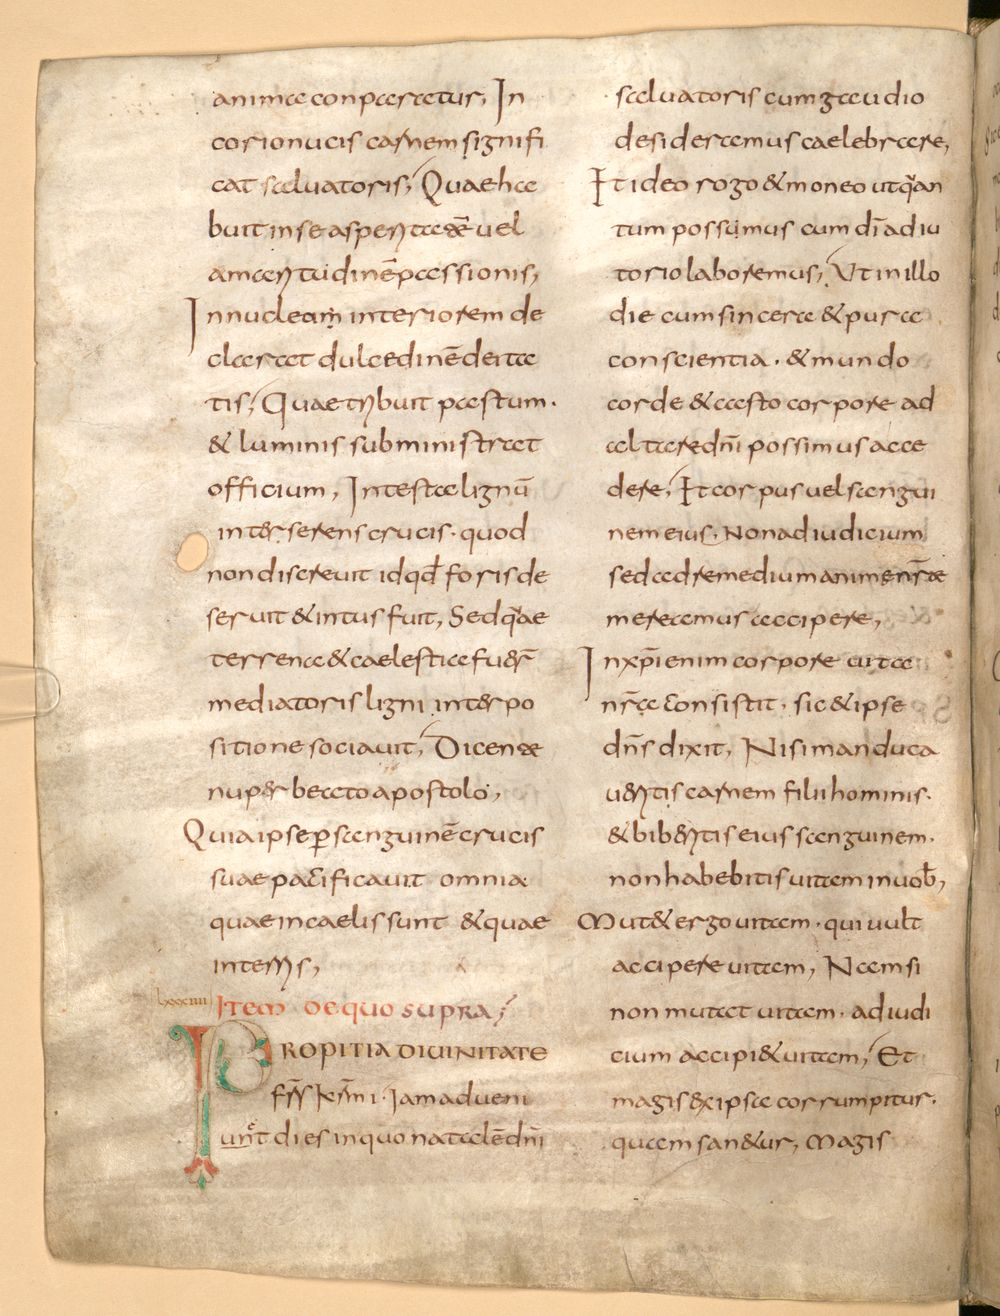 animae conparatur, In
corio nucis carnem signifi
cat saluatoris, Quae ha
buit in se asperitatem uel
amaritudinē passionis,
In nucleam̄ interiorem de
clarat dulcedinē deita
tis, Quae tribuit pastum·
& luminis subministrat
officium, In testa lignū
interserens crucis· quod
non discreuit id qđ foris de
seruit & intus fuit, Sed q̄ae
terrena & caelestia fuer̄
mediatoris ligni interpo
sitione sociauit, Dicente
nuper beato apostolo,
Quia ipse ꝑ sanguinē crucis
suae pacificauit omnia
quae in caelis sunt & quae
in terris,
lxxxiiii ITEM DE QUO SUPRA;
PROPITIA DIUINITATE
fr̄s kr̄mi· Iam adueni
unt dies in quo natalē dn̄i
saluatoris cum gaudio
desideramus caelebrare,
Et ideo rogo & moneo ut q̄an
tum possumus cum dī adiu
torio laboremus, Ut in illo
die cum sincera & pura
conscientia· & mundo
corde & casto corpore ad
altare dn̄i possimus acce
dere, Et corpus uel sangui
nem eius, Non ad iudicium
sed ad remedium anime nr̄ae
mereamus accipere,
In xp̄i enim corpore uita
nr̄a consistit· sic & ipse
dn̄s dixit, Nisi manduca
ueritis carnem filii hominis·
& biberitis eius sanguinem·
non habebitis uitam in uob̄,
Mut& ergo uitam· qui uult
accipere uitam, Nam si
non mutat uitam· ad iudi
cium accipi& uitam, Et
magis ex ipsa corrumpitur·
quam san&ur, Magis